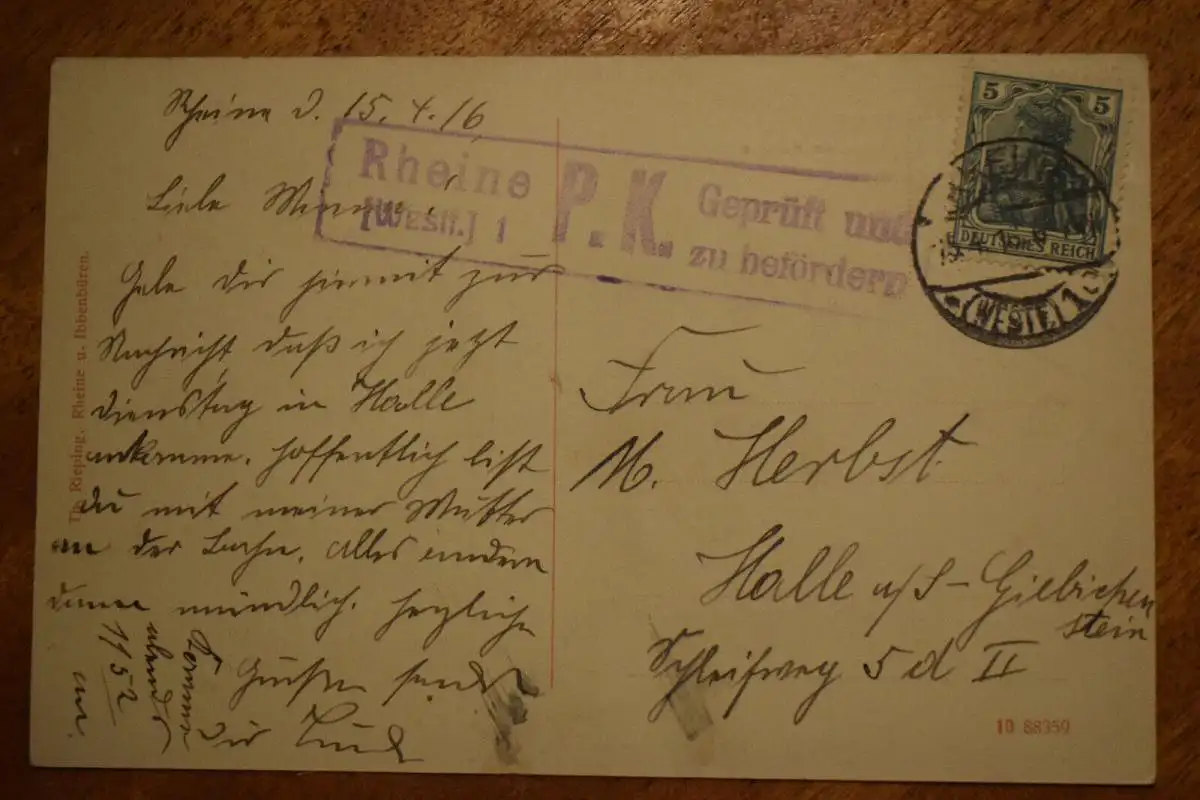 Rheine d. 15.4.16,
Liebe
Gebe dir hiermit zur
Nachricht, daß ich jetzt
Dienstag in Halle
ankomme. hoffentlich bist
du mit meiner Mutter
an der Bahn. Alles andere
dann mündlich. Herzliche
Grüße sendet
dir
Komme
abends
11 52
an.
Rheine P.K. Geprüft und
[Westf.] 1 zu befördern
5 5
DEUTSCHES REICH
(WESTF.) 1 c
Frau
M. Herbst.
Halle a/S - Giebichen
stein
Schleifweg 5 d II
Th. Rieping, Rheine u. Ibbenbüren.
10 88359